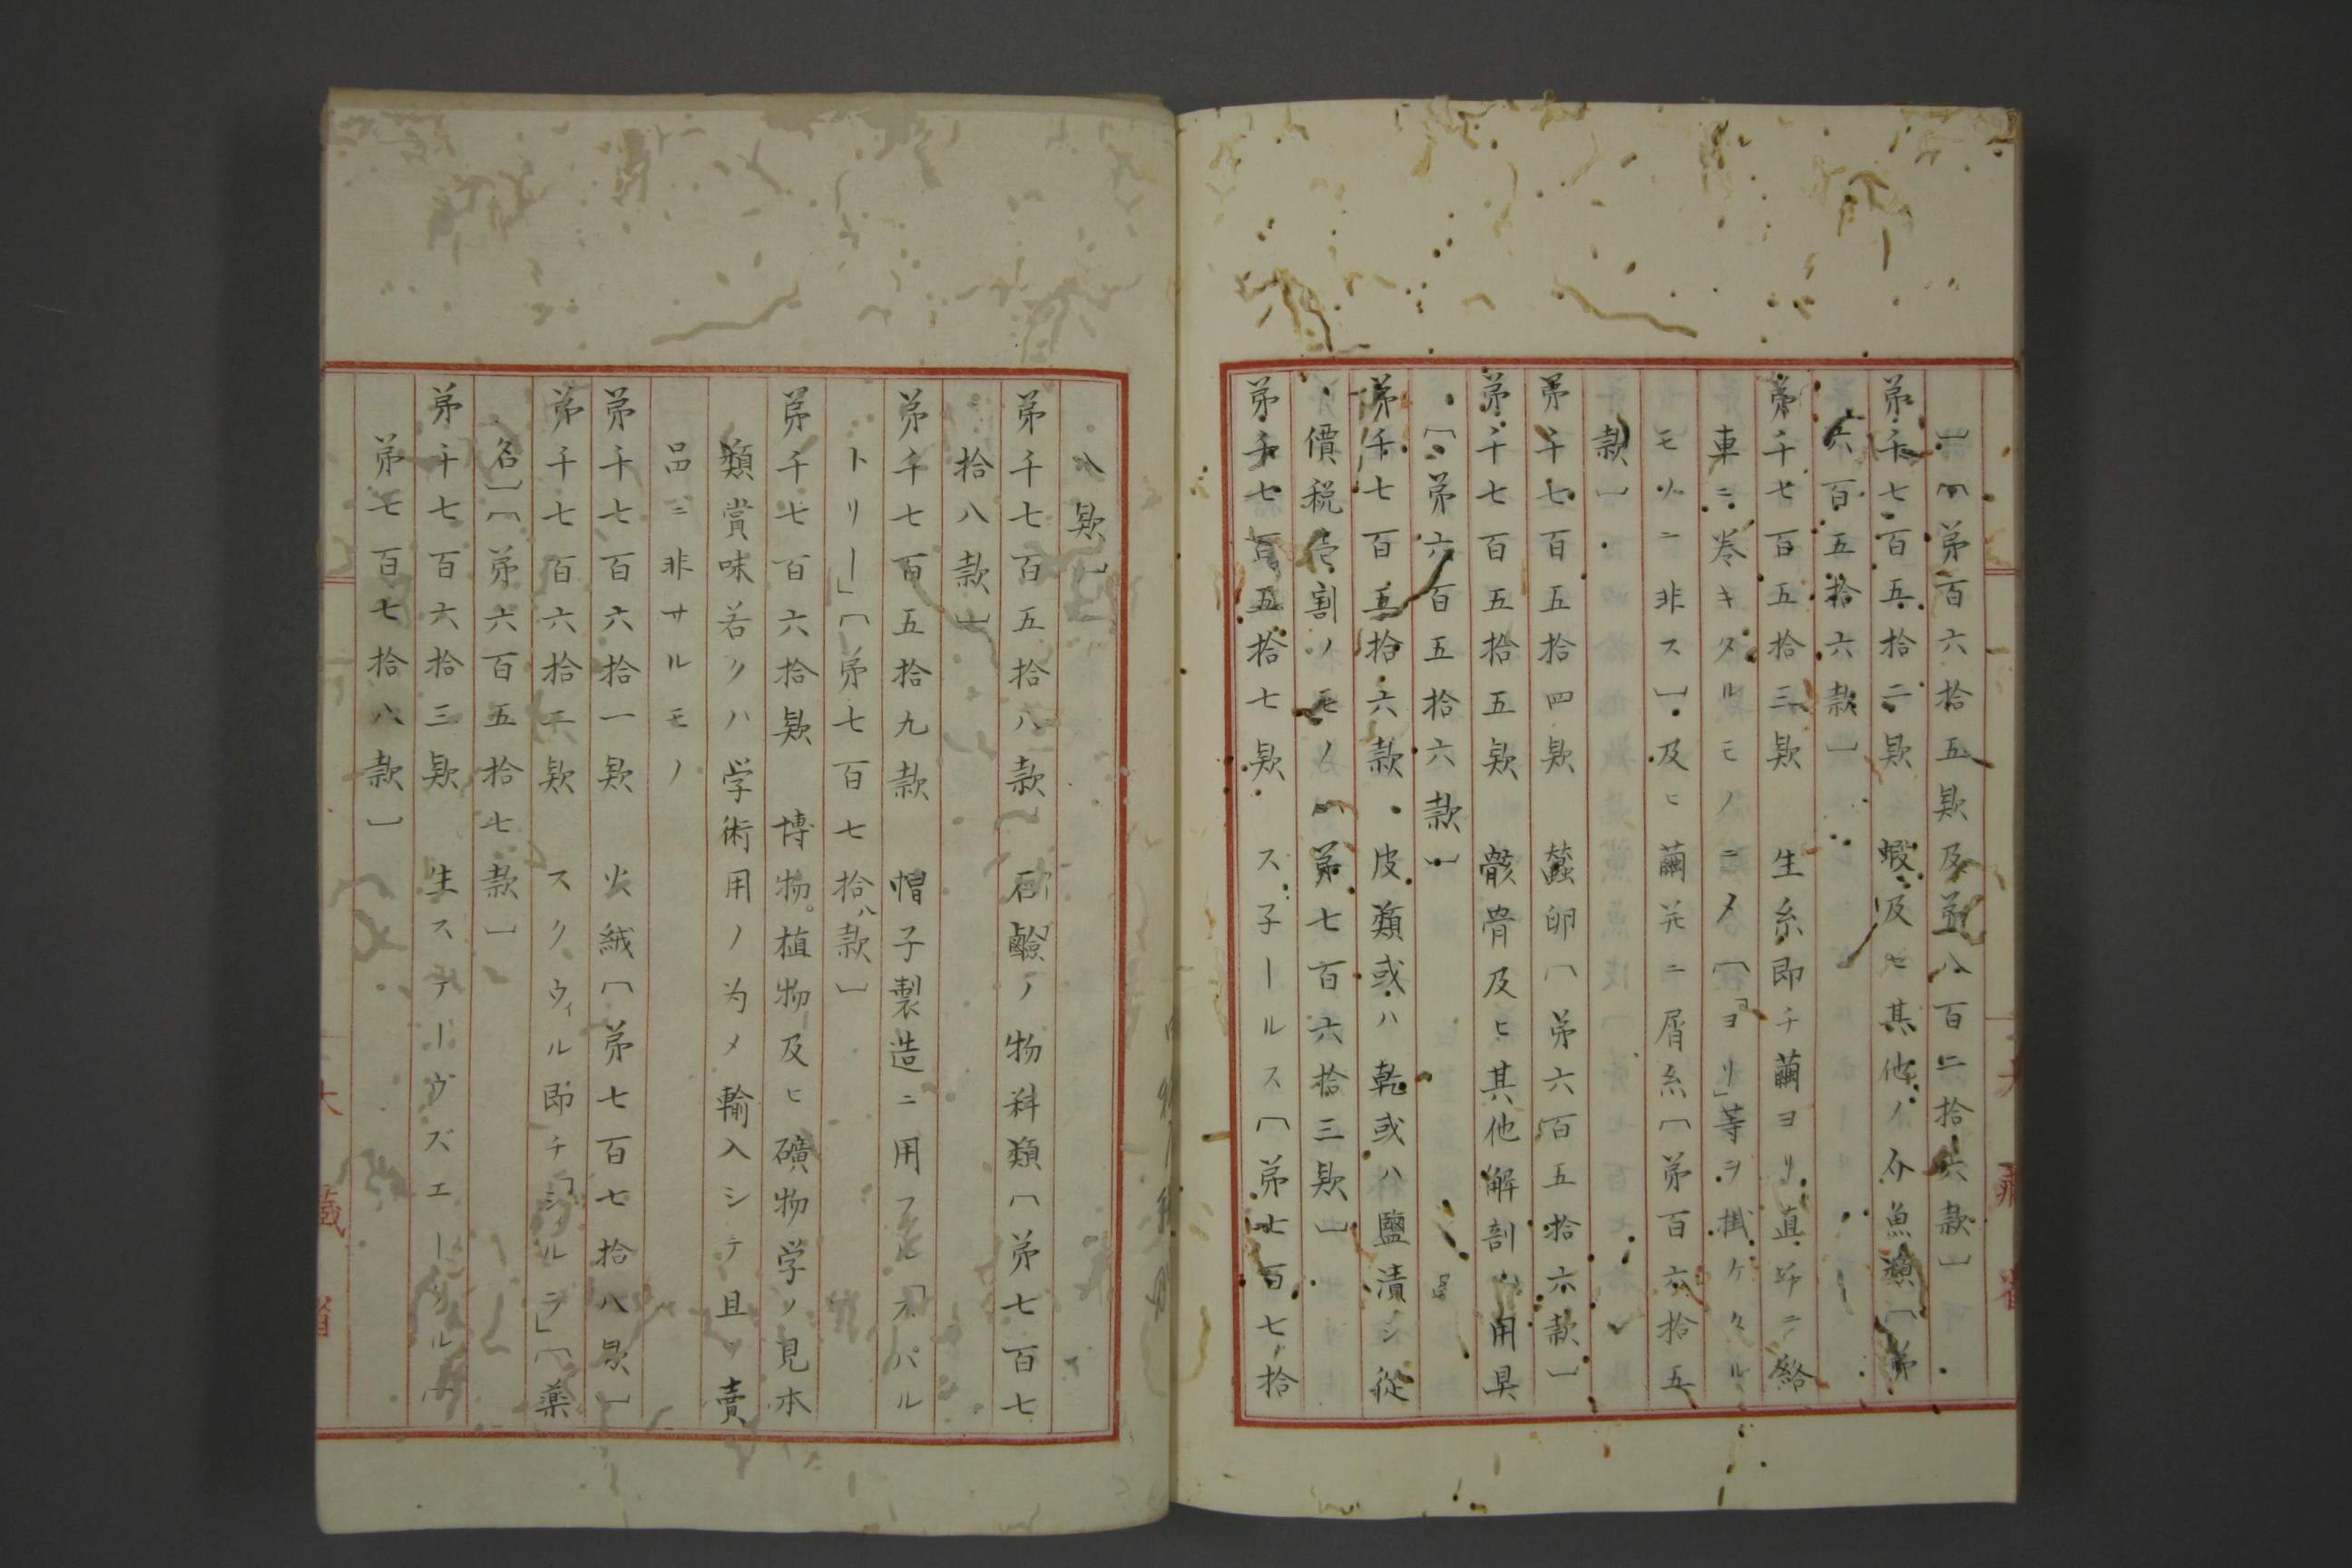 〕〔第百六拾五欵及第八百二拾六款〕
第千七百五拾二欵　蝦及ヒ其他ノ介魚類〔第
六百五拾六款〕
第千七百五拾三欵　生糸即チ繭ヨリ直ニ絡
車ニ巻キタルモノニメ〔「ヨリ」等ヲ掛ケタル
モノニ非ス〕及ヒ繭并ニ屑糸〔第百六拾五
款〕
第千七百五拾四欵　蠶卵〔第六百五拾六款〕
第千七百五拾五欵　骸骨及ヒ其他解剖用具
〔第六百五拾六款〕
第千七百五拾六款　皮類或ハ乾或ハ鹽漬シ從
價税壱割ノモノ〔第七百六拾三欵〕
第千七百五拾七欵　ス子ールス〔第七百七拾
八欵〕
第千七百五拾八款　石鹼ノ物料類〔第七百七
拾八款〕
第千七百五拾九款　帽子製造ニ用フル「スパル
トリー」〔第七百七拾八款〕
第千七百六拾欵　博物植物及ヒ礦物学ノ見本
類賞味若クハ学術用ノ为メ輸入シテ且ツ賣
品ニ非サルモノ
第千七百六拾一欵　火絨〔第七百七拾八欵〕
第千七百六拾二欵　スクウィル即チ「シルラ」〔藥
名〕〔第六百五拾七款〕
第千七百六拾三欵　生ステーヴズエー
第七百七拾八款〕
大藏省